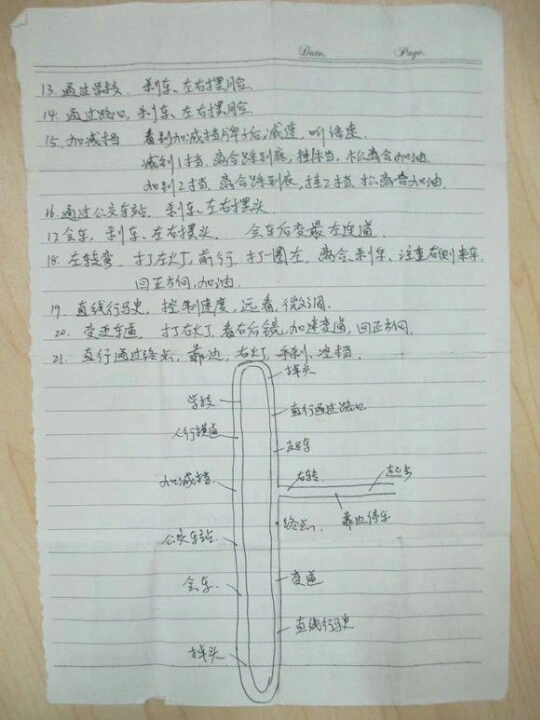 Date. Page.
13. 通过学校、刹车、左右摆脸
14. 通过路口, 刹车、左右摆脸
15. 加减挡 看到加减挡牌子后, 减速、听语音.
减到1挡, 离合踩到底, 挂1挡, 松离合加油.
加到2挡, 离合踩到底, 挂2挡, 松离合加油.
16. 通过公交车站、刹车、左右摆头.
17 会车, 刹车、左右摆头. 会车后变最左边道
18. 左转弯, 打左灯, 前行, 打一圈左, 离合、刹车、注意右侧来车.
回正方向, 加油.
19. 直线行驶, 控制速度, 远看, 微调.
20. 变更车道, 打右灯, 看右后镜, 加速变道, 回正方向.
21. 直行通过终点, 靠边, 右灯, 手刹、空挡.
掉头
学校
直行通过路口
人行横道
超车
加减挡.
右转
靠边停车
终点
公交车站.
会车.
变道
直线行驶
掉头